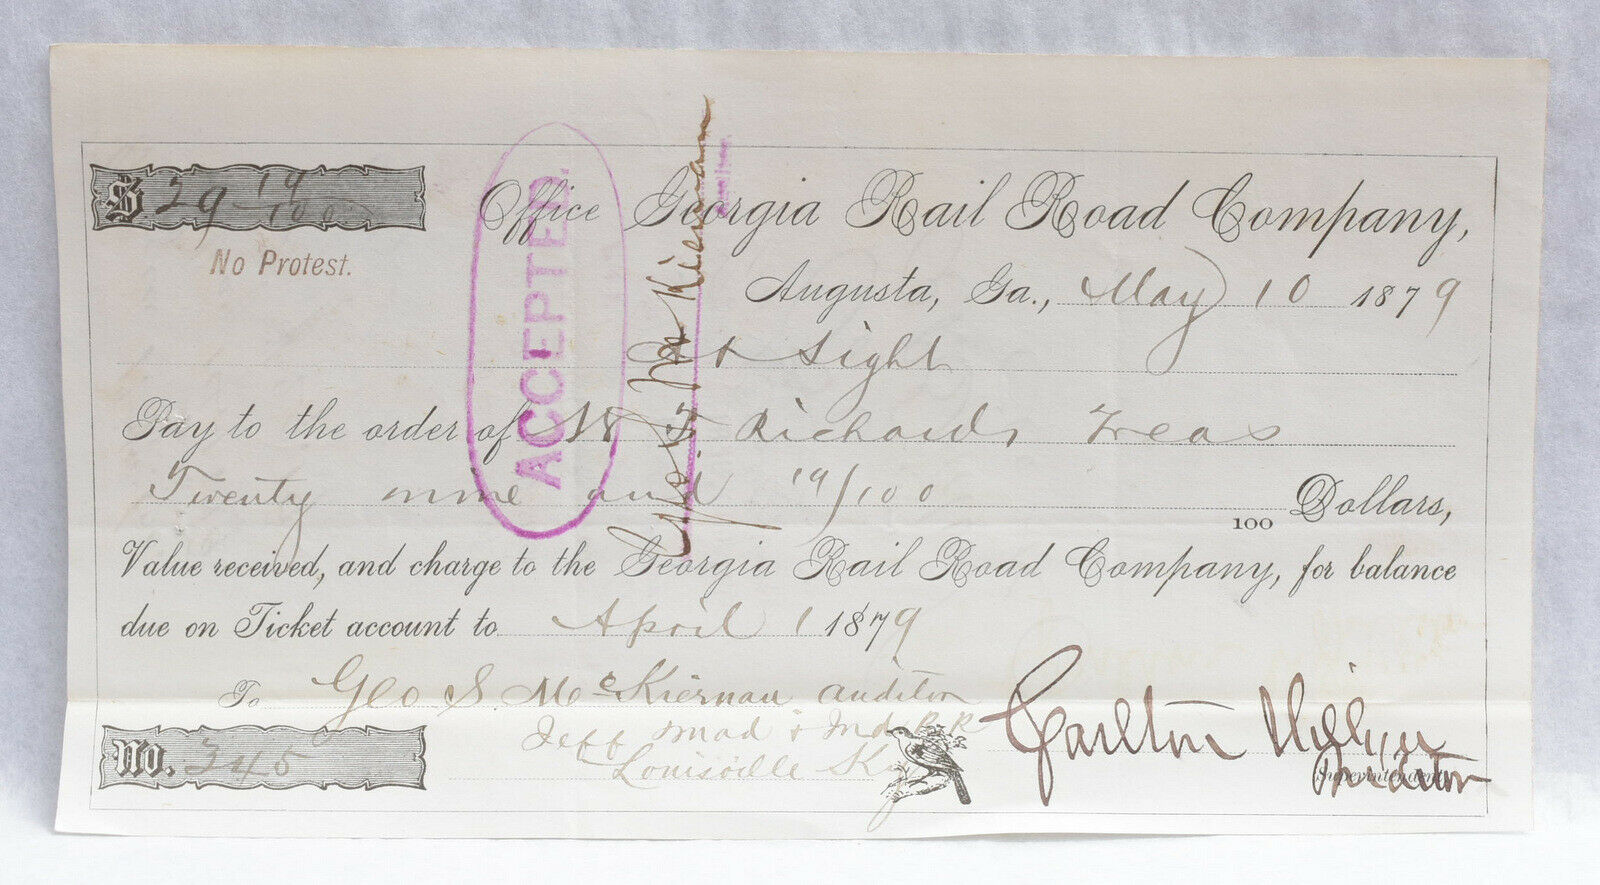 $ 29 19/100
No Protest.
Office Georgia Rail Road Company,
Augusta, Ga., May 10 1879
At Sight
Pay to the order of Richards Treas
Twenty nine and 19/100 100 Dollars,
Value received, and charge to the Georgia Rail Road Company, for balance
due on Ticket account to April 1 1879
To Geo S. McKiernan auditor
Jeff Mad & Ind R R
Louisville Ky
No. 345
Carlton Hillyer
Superintendent
Auditor
ACCEPTED.
Geo. S. McKiernan
Auditor.